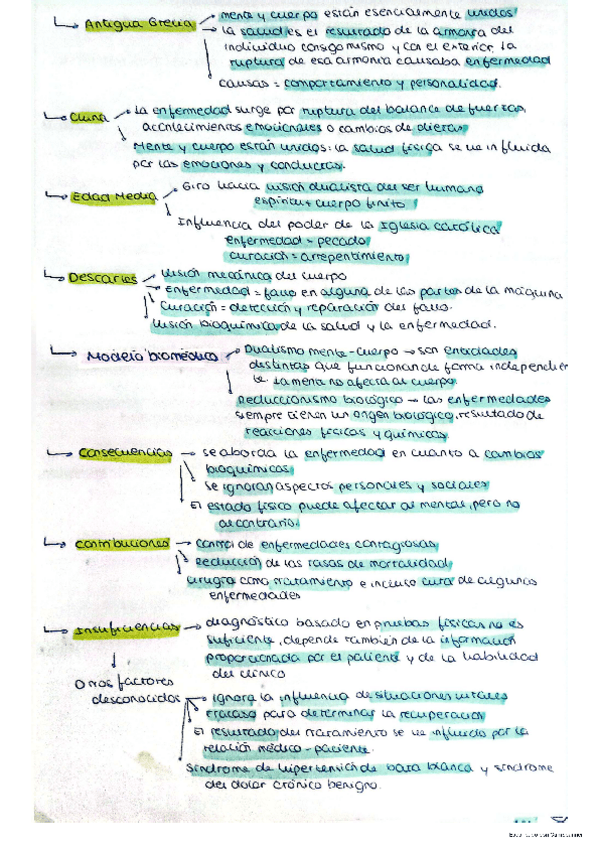 Antigua Grecia → mente y cuerpo están esencialmente unidos.
la salud es el resultado de la armonía del
individuo consigo mismo y con el exterior, la
ruptura de esa armonía causaba enfermedad
causas = comportamiento y personalidad.
China → La enfermedad surge por ruptura del balance de fuerzas,
acontecimientos emocionales o cambios de dietas
Mente y cuerpo están unidos: la salud física se ve influida
por las emociones y conductas.
Edad Media → Giro hacia visión dualista del ser humano
espíritu + cuerpo finito
Influencia del poder de la Iglesia católica
enfermedad = pecado
curación = arrepentimiento
Descartes → visión mecánica del cuerpo
Enfermedad = fallo en alguna de las partes de la máquina
Curación = detección y reparación del fallo.
Visión bioquímica de la salud y la enfermedad.
Modelo biomédico → Dualismo mente-cuerpo → son entidades
distintas que funcionan de forma independien
te. La mente no afecta al cuerpo.
Reduccionismo biológico → las enfermedades
siempre tienen un origen biológico, resultado de
reacciones físicas y químicas.
Consecuencias → se aborda la enfermedad en cuanto a cambios
bioquímicos
se ignoran aspectos personales y sociales
El estado físico puede afectar al mental, pero no
al contrario.
Contribuciones → control de enfermedades contagiosas
Reducción de las tasas de mortalidad
cirugía como tratamiento e incluso cura de algunas
enfermedades
Insuficiencias → diagnóstico basado en pruebas físicas no es
suficiente, depende también de la información
proporcionada por el paciente y de la habilidad
del clínico
Otros factores
desconocidos → ignora la influencia de situaciones vitales
Fracaso para determinar la recuperación
El resultado del tratamiento se ve influido por la
relación médico-paciente.
Síndrome de hipertensión de bata blanca y síndrome
del dolor crónico benigno.